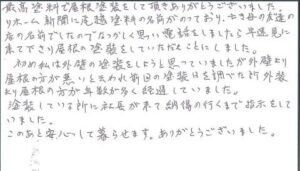 最高塗料で屋根塗装をして頂きありがとうございました。
リホーム新聞に尾越塗料の名前がのっており、亡き母の友達の
店の名前でしたのでなつかしく思い電話をしました。早速見に
来て下さり屋根の塗装をしていただくことにしました。
初め私は外壁の塗装をしようと思っていましたが外壁より
屋根の方が悪いと云われ前回の塗装日を調べた所外装
より屋根の方が年数が多く経過していました。
塗装している所に社長が来て納得の行くまで指示をして
いました。
このあと安心して暮らせます。ありがとうございました。